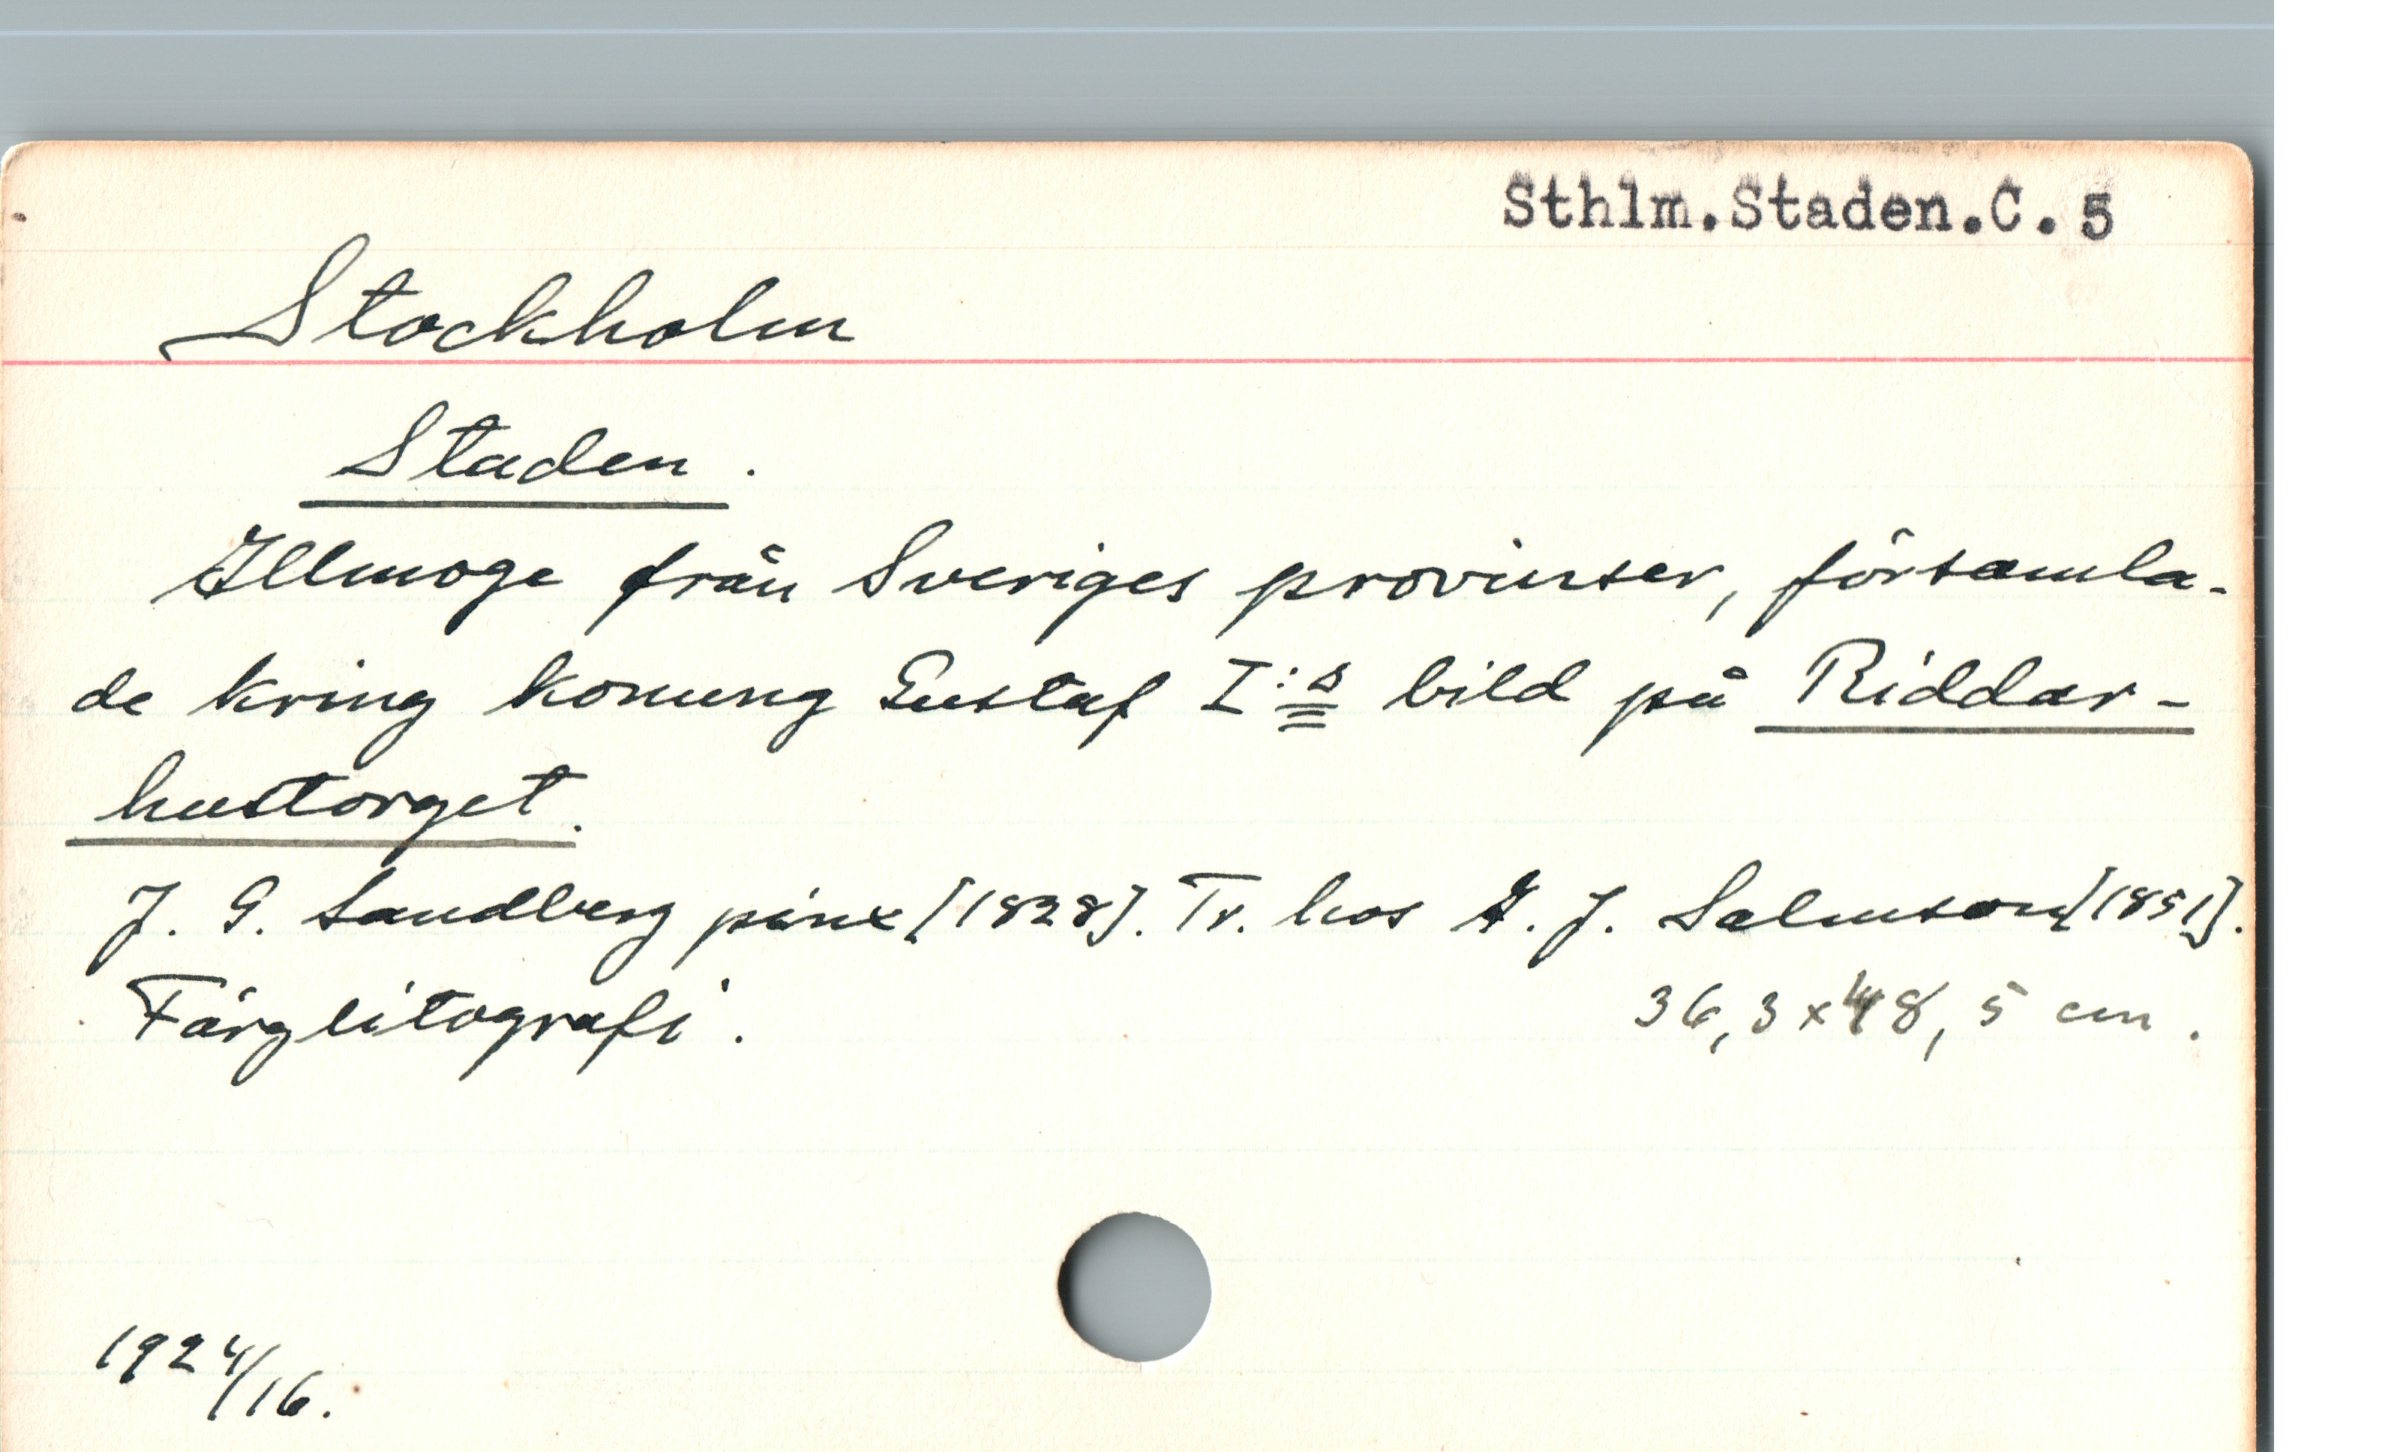 Sthlm.Staden.C. 5
Stockholm
Staden.
Allmoge från Sveriges provinser, församla-
de kring konung Gustaf I:s bild på Riddar-
hustorget.
J. G. Sandberg pinx [1828]. Tr. hos A. J. Salmson [1851].
Färglitografi. 36,3 x 48,5 cm.
1924/16.